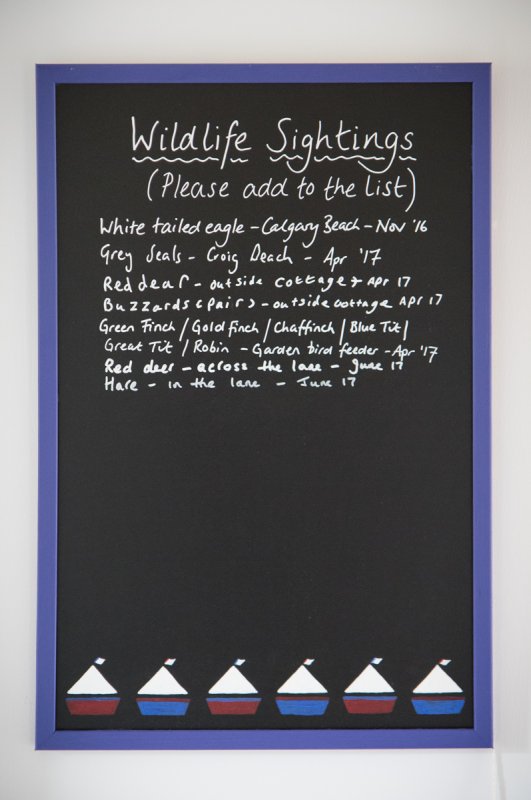 Wildlife Sightings
(Please add to the List)
White tailed eagle - Calgary Beach - Nov '16
Grey Seals - Croig Beach - Apr '17
Red dear - outside cottage + Apr 17
Buzzards (pair) - outside cottage Apr 17
Green Finch / Gold finch / Chaffinch / Blue Tit /
Great Tit / Robin - Garden bird feeder - Apr '17
Red deer - across the lane - June 17
Hare - in the lane - June 17